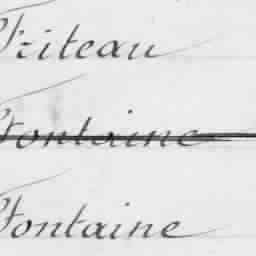 Friteau
Fontaine
Fontaine